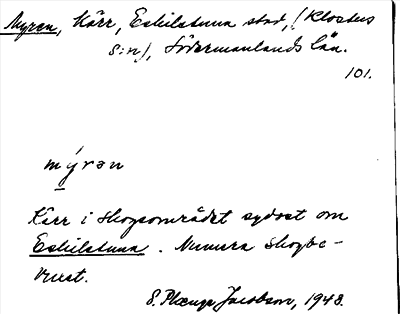 Myren, Kärr, Eskilstuna stad, (Klosters
s:n), Södermanlands län.
101.
mýrən
Kärr i skogsområdet sydost om
Eskilstuna. Numera skogbe-
vuxet.
S. Plænge Jacobson, 1948.